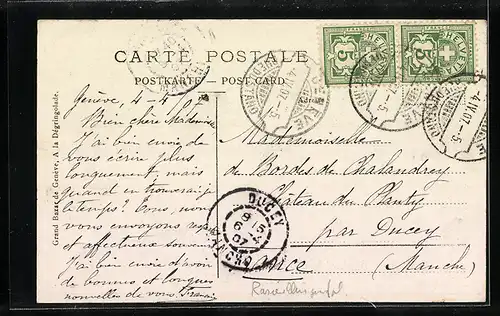 CARTE POSTALE
POSTKARTE — POST CARD.
5 HELVETIA 5 HELVETIA
-4.IV.07.-5
Genève, 4-4.07
Bien chère Mademoiselle
J'ai bien envie de
vous écrire plus
longuement, mais
quand en trouverai-je
le temps? Tous nous
vous envoyons
et affectueux
J'ai bien envie d'avoir
de bonnes et longues
nouvelles de vous.
Mademoiselle
de Bordes de Chalandrey
Château du Planty
par Ducey
(Manche)
France
DUCEY
MANCHE
Grand Bazar de Genève, A la Dégringolade.